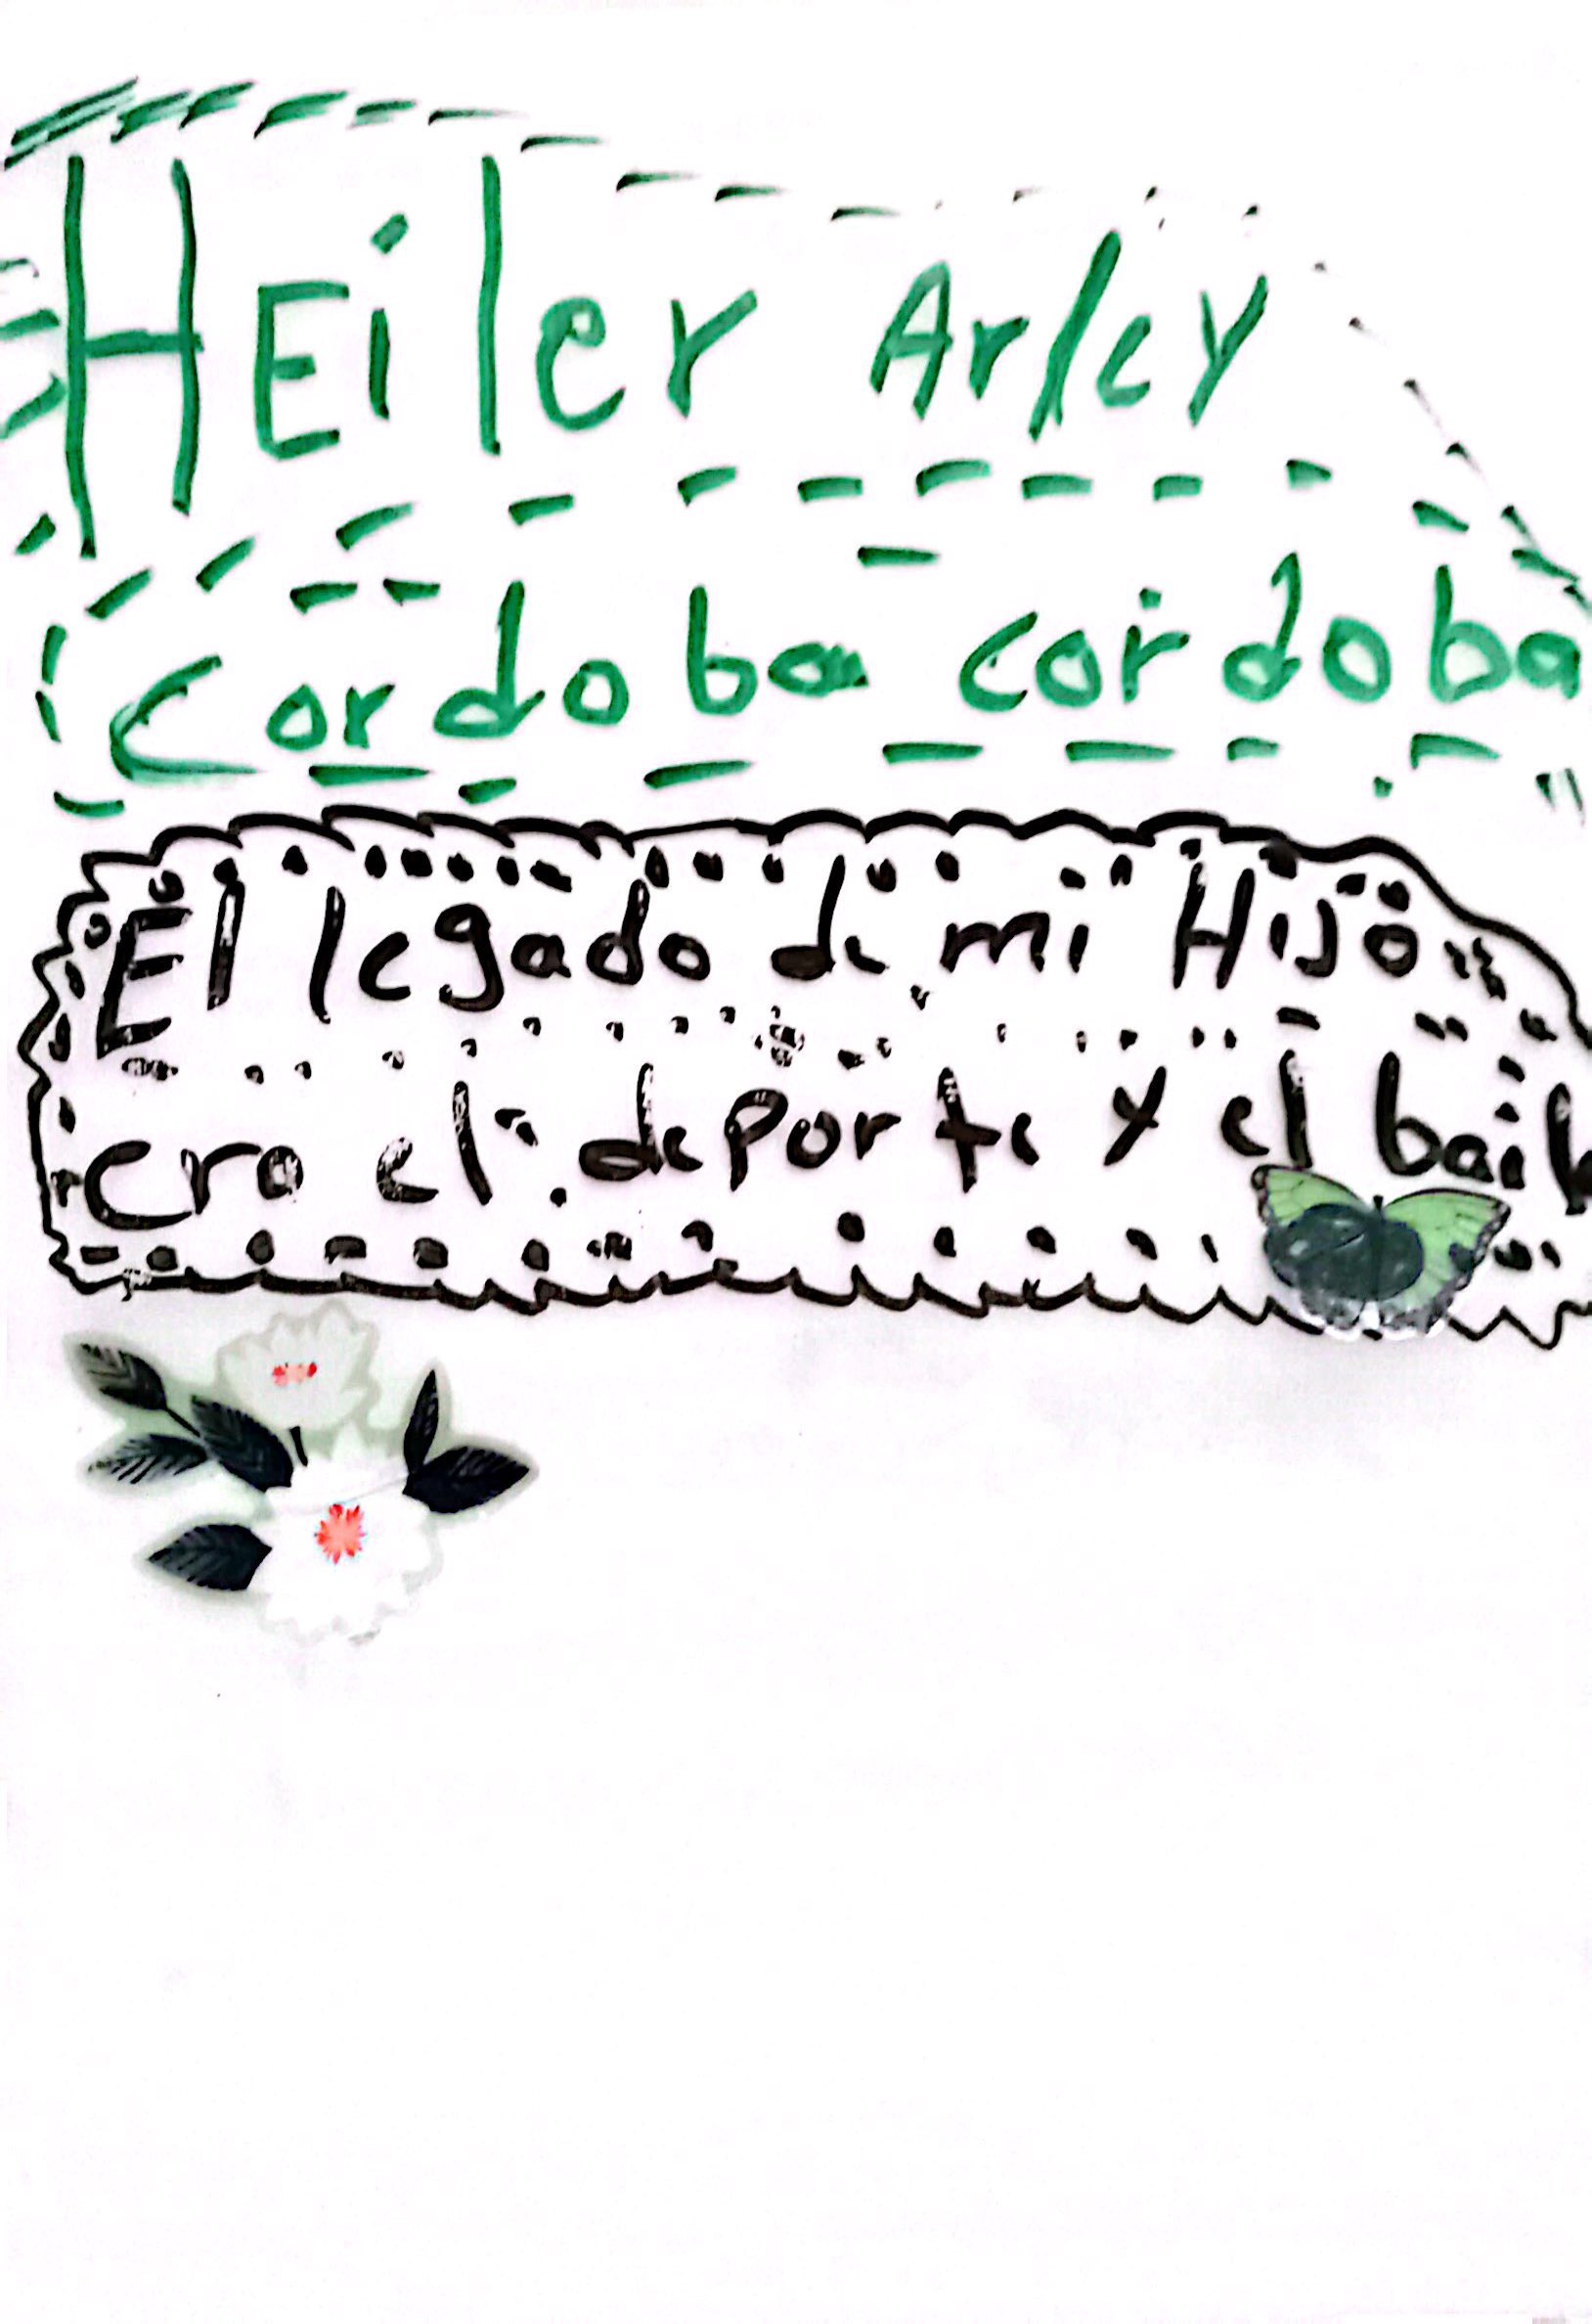 HEiler Arley
Cordoba cordoba
El legado de mi HiJo
ero el deporte y el baile